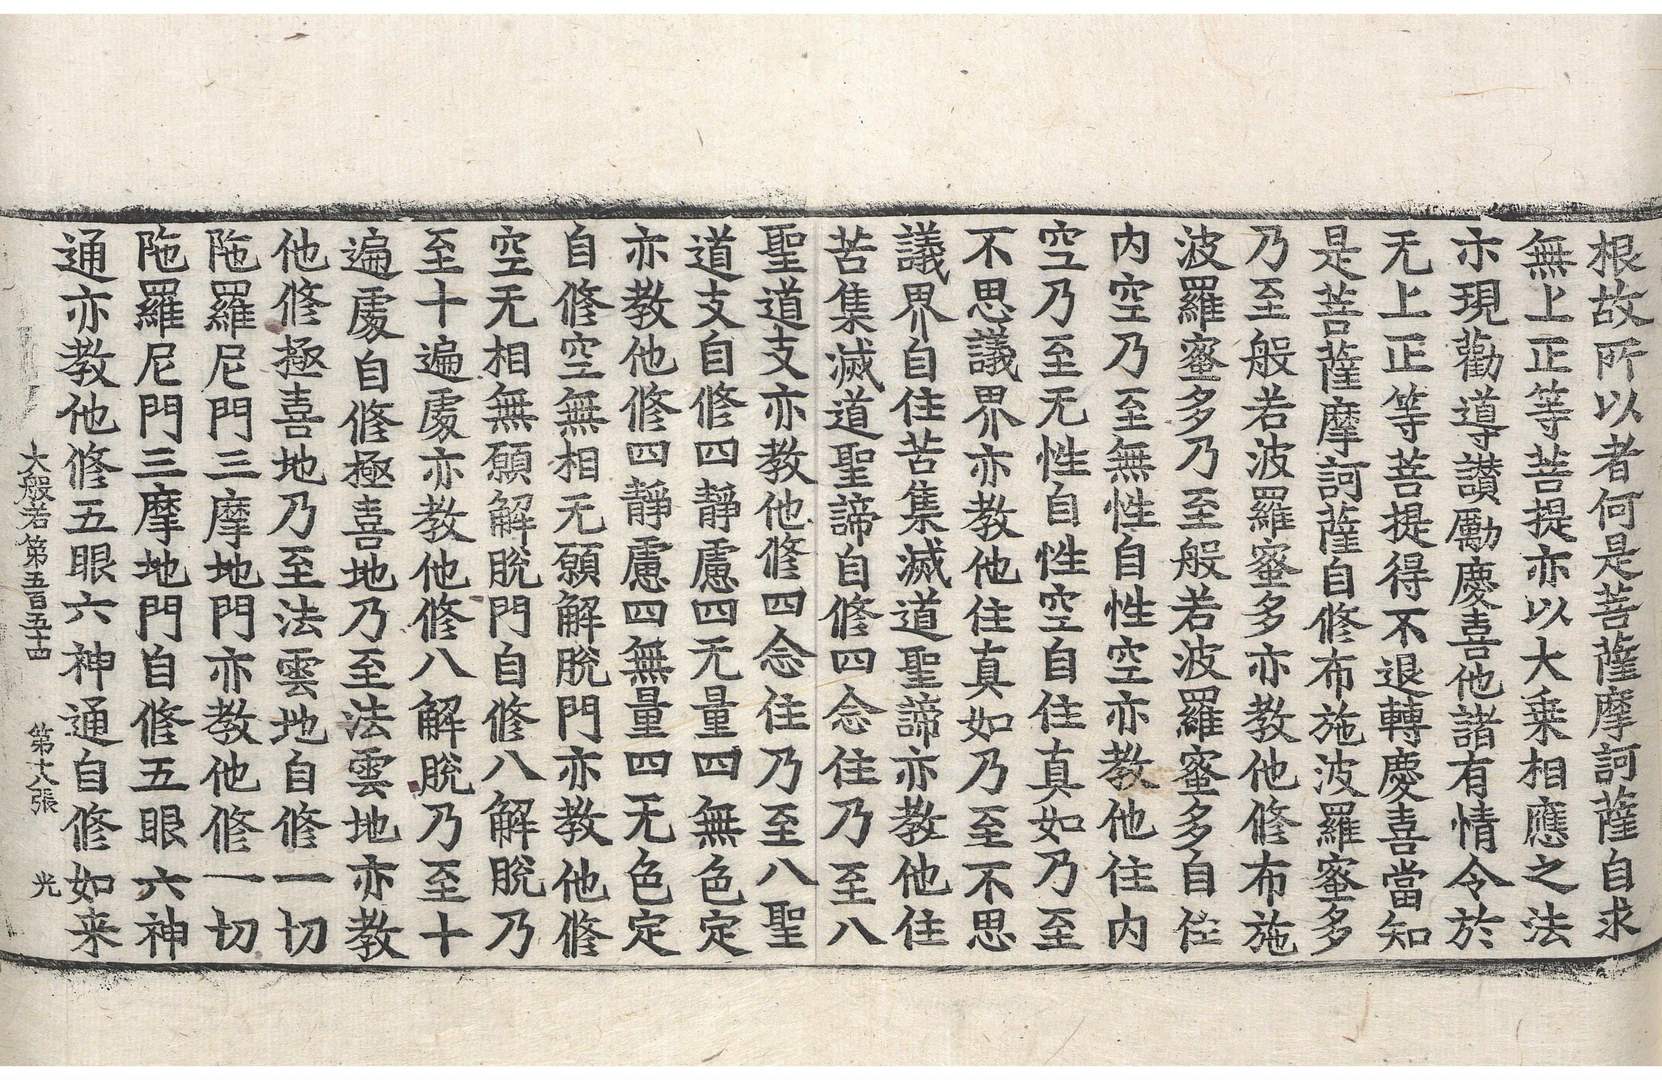 根故所以者何是菩薩摩訶薩自求
無上正等菩提亦以大乗相應之法
示現勸導讚勵慶喜他諸有情令於
无上正等菩提得不退轉慶喜當知
是菩薩摩訶薩自修布施波羅蜜多
乃至般若波羅蜜多亦教他修布施
波羅蜜多乃至般若波羅蜜多自住
内空乃至無性自性空亦教他住内
空乃至无性自性空自住真如乃至
不思議界亦教他住真如乃至不思
議界自住苦集滅道聖諦亦教他住
苦集滅道聖諦自修四念住乃至八
聖道支亦教他修四念住乃至八聖
道支自修四靜慮四无量四無色定
亦教他修四靜慮四無量四无色定
自修空無相无願解脫門亦教他修
空无相無願解脫門自修八解脫乃
至十遍處亦教他修八解脫乃至十
遍處自修極喜地乃至法雲地亦教
他修極喜地乃至法雲地自修一切
陁羅尼門三摩地門亦教他修一切
陁羅尼門三摩地門自修五眼六神
通亦教他修五眼六神通自修如来
大般若第五百五十四 第十八張 光